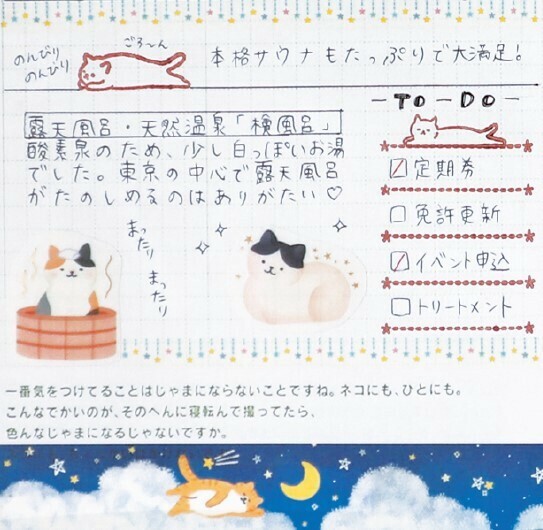 のんびり
のんびり
ごろ〜ん
本格サウナもたっぷりで大満足!
露天風呂・天然温泉「檜風呂」
酸素泉のため、少し白っぽいお湯
でした。東京の中心で露天風呂
がたのしめるのはありがたい♡
まったり
まったり
ーTOーDOー
定期券
免許更新
イベント申込
トリートメント
一番気をつけてることはじゃまにならないことですね。ネコにも、ひとにも。
こんなでかいのが、そのへんに寝転んで撮ってたら、
色んなじゃまになるじゃないですか。